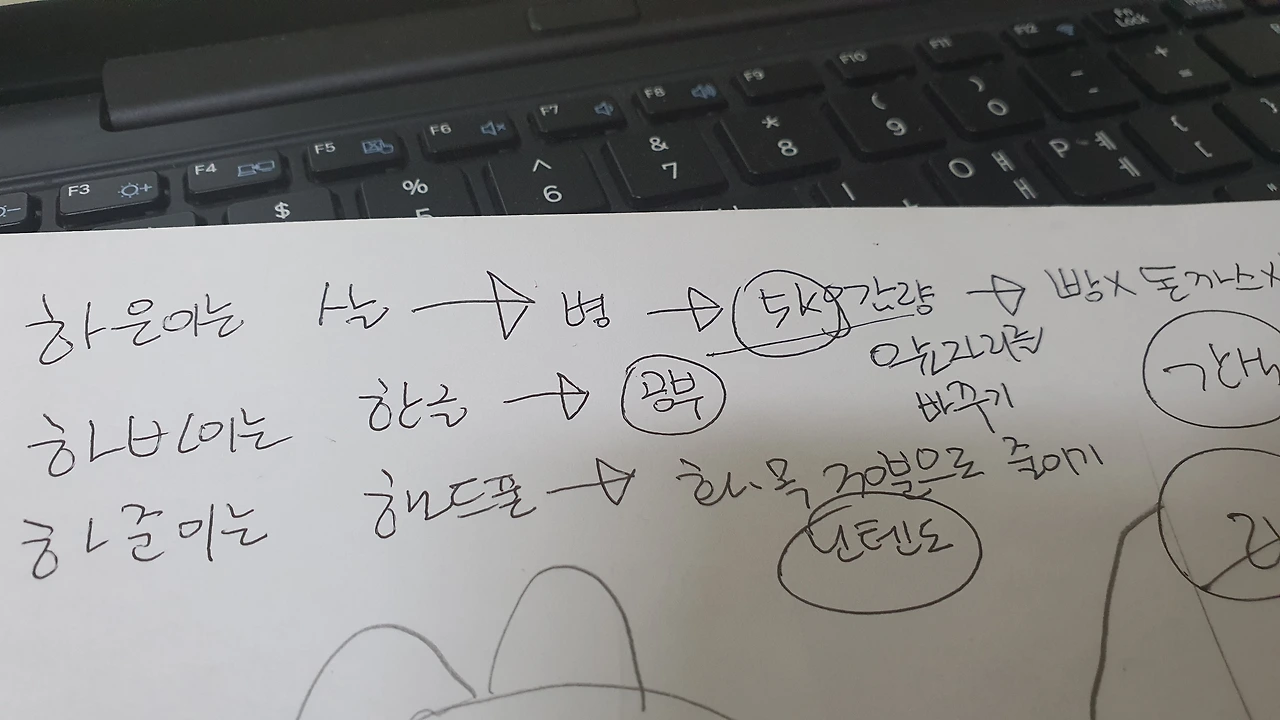 F3 F4 F5 F6 F7 F8 F9 F10 F11 F12 Fn Lock
$ % 5 ^ 6 & 7 * 8 ( 9 ) 0 - + =
O ㅒ ㅐ P ㅖ ㅔ { [ }
하은이는 살 → 병 → 5kg 감량 → 빵X 돈까스X
음료
바꾸기
하빈이는 한글 → 공부
하준이는 핸드폰 → 화.목 30분으로 줄이기
닌텐도